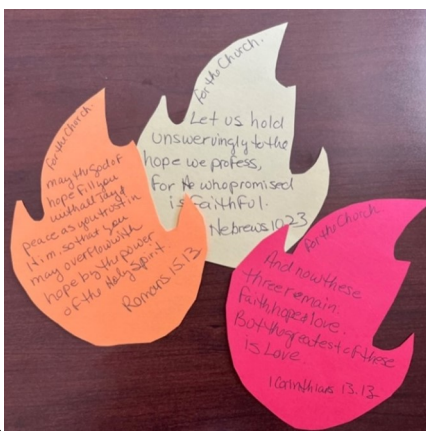 for the Church.
may the God of
hope fill you
with all joy &
peace as you trust in
Him, so that you
may overflow with
hope by the power
of the Holy Spirit.
Romans 15:13
for the Church.
Let us hold
unswervingly to the
hope we profess,
for He who promised
is faithful.
Hebrews 10:23
for the Church
And now these
three remain.
Faith, hope & love.
But the greatest of these
is Love.
1 Corinthians 13:13